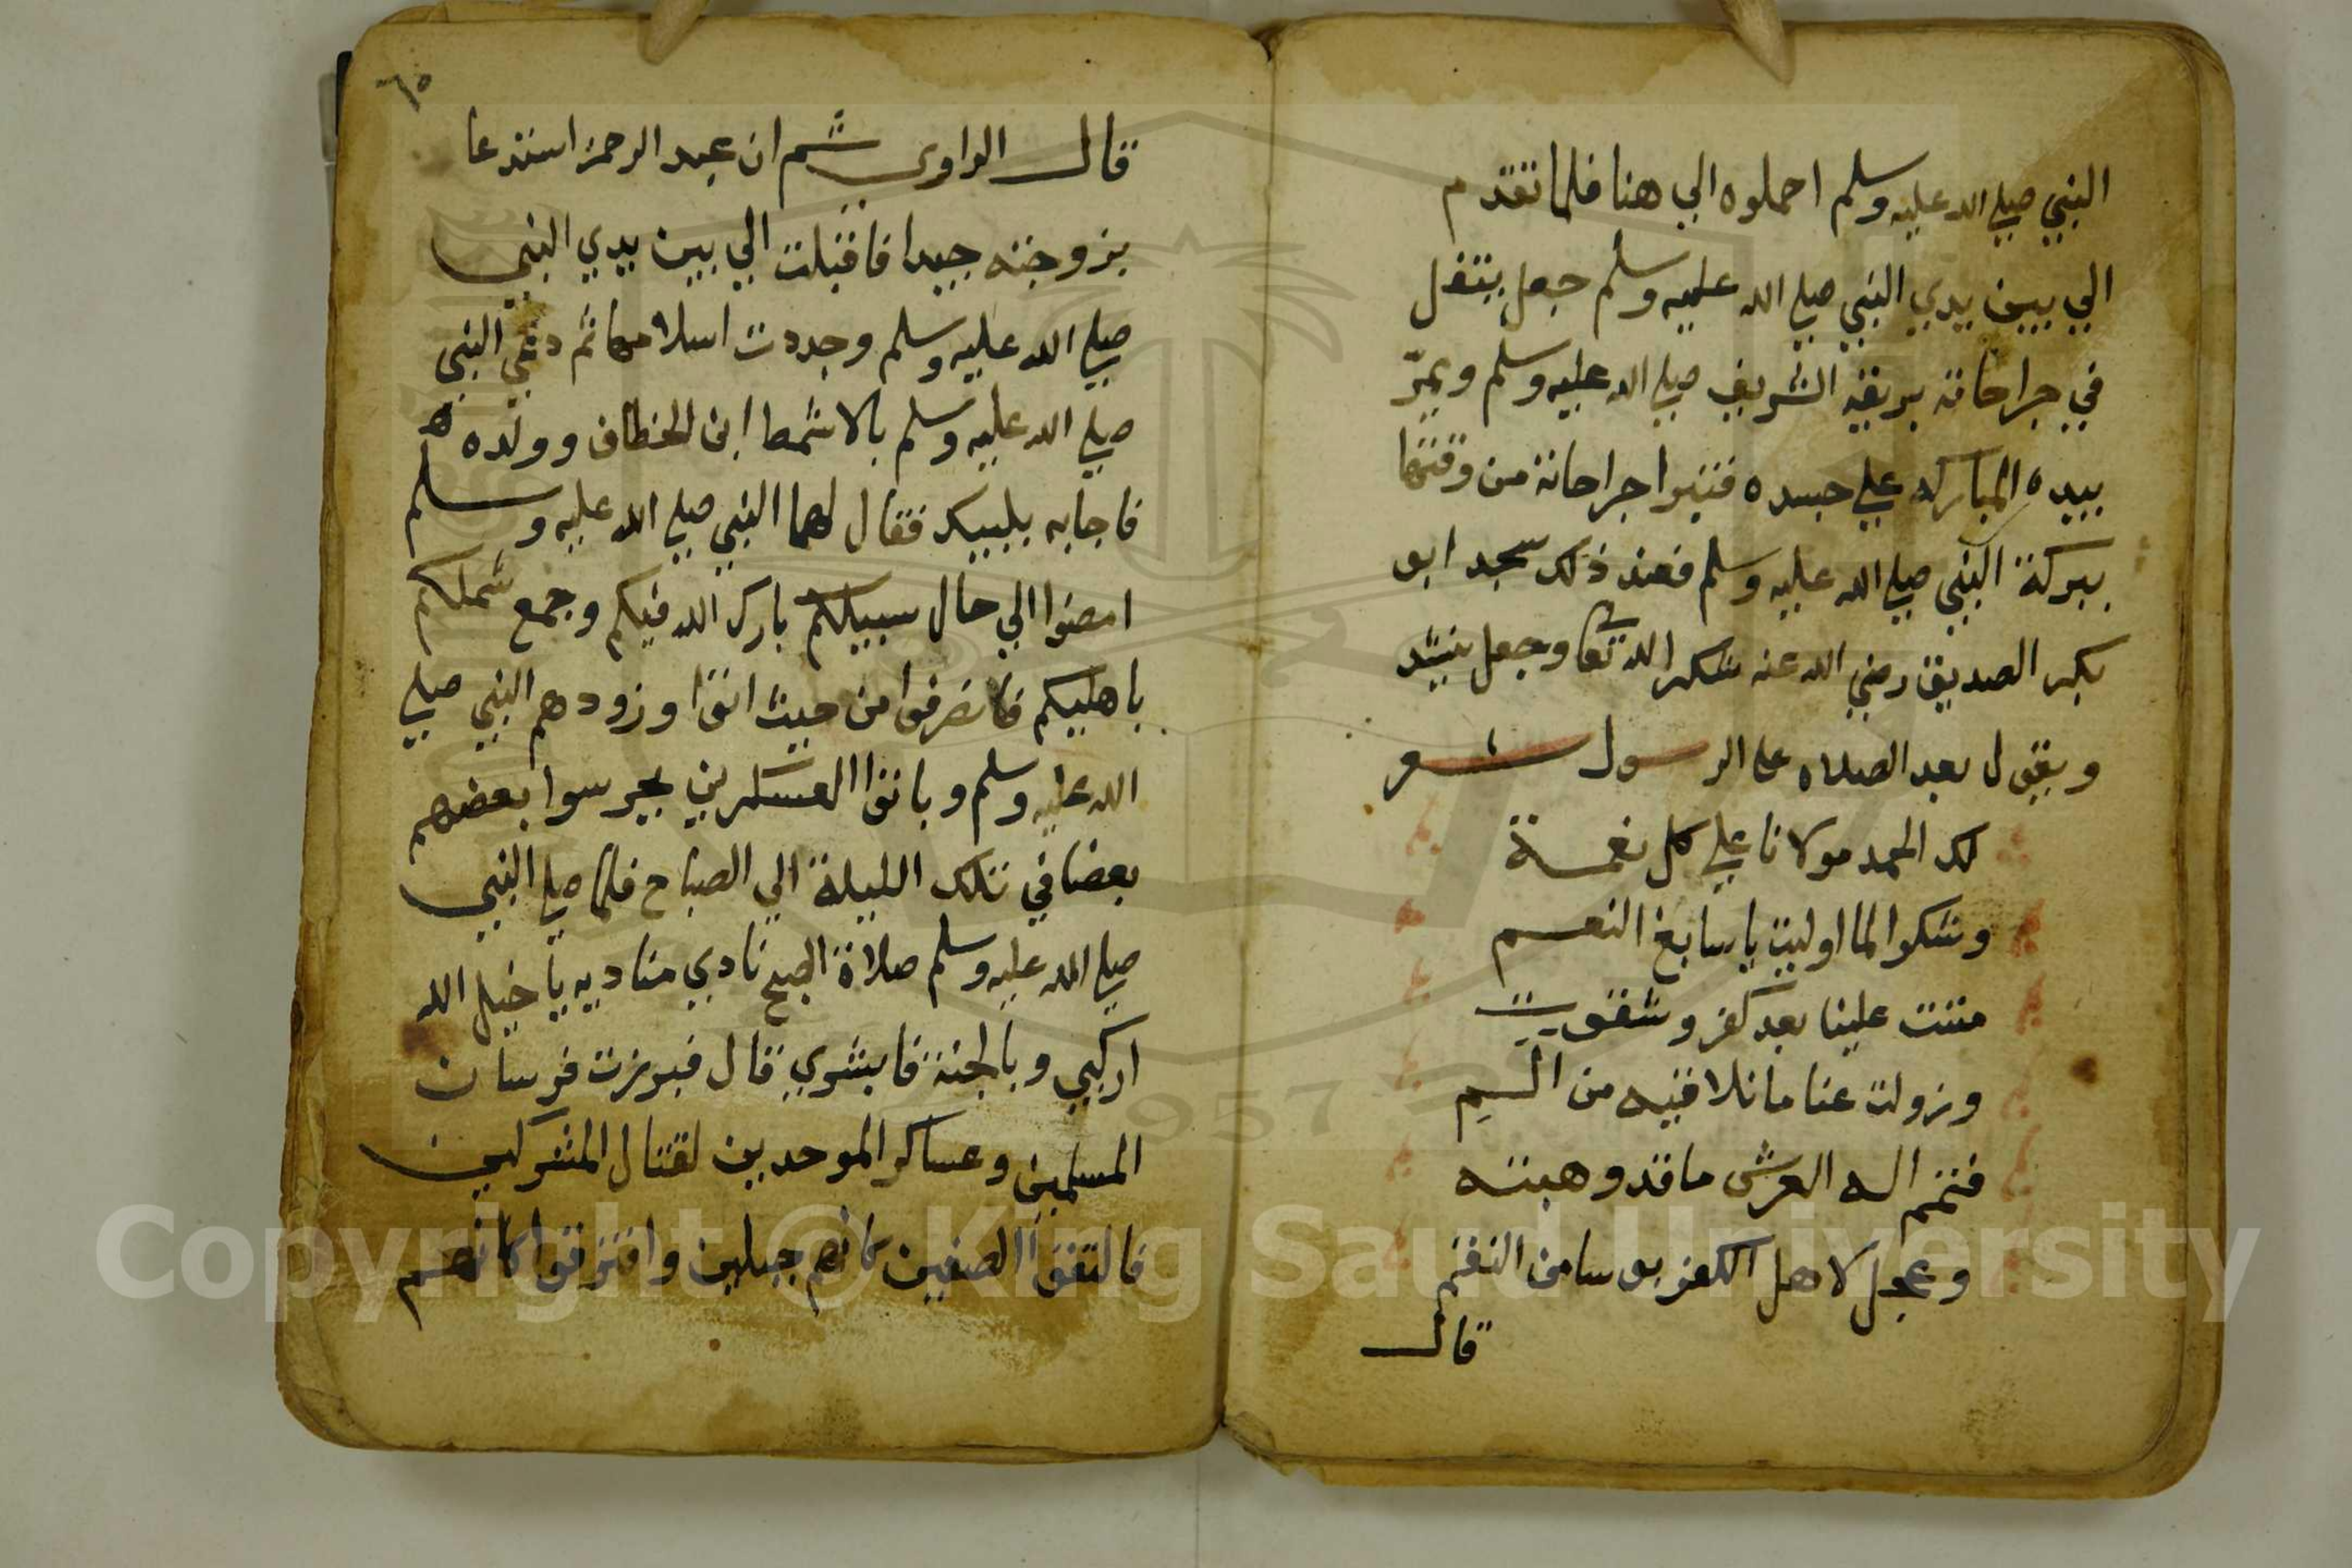 النبي صلي الله عليه وسلم احملوه الي هنا فلما تقدم
الي بين يدي النبي صلي الله عليه وسلم جعل يتفل
في جراحاته بريقه الشريف صلي الله عليه وسلم ويمرّ
بيده المباركه علي جسده فبروا جراحاته من وقتها
ببركة النبي صلي الله عليه وسلم فعند ذلك سجد ابو
بكر الصديق رضي الله عنه شكر الله تعا وجعل ينشد
ويقول بعد الصلاه على الرسول شعر
لك الحمد مولانا علي كل نعمة
وشكوا لما اوليت يا سابغ النعم
مننت علينا بعد كفر وشقوت
وزولت عنا ما نلاقيه من السم
فتمم اله العرش ما قد وهبته
وعجل لاهل الكفر بوسا من النقم
قال
٦٥
قال الراوي ثم ان عبد الرحمن استدعا
بزوجته جيدا فاقبلت الي بين يدي النبي
صلي الله عليه وسلم وجددت اسلامها ثم دعي النبي
صلي الله عليه وسلم بالاشمط ابن الخطاف وولده
فاجابه بلبيك فقال لهما النبي صلي الله عليه وسلم
امضوا الي حال سبيلكم بارك الله فيكم وجمع شملكم
باهليكم فانصرفوا من حيث اتوا وزودهم النبي صلي
الله عليه وسلم وباتوا العسكرين يحرسوا بعضهم
بعضا في تلك الليلة الي الصباح فلما صلي النبي
صلي الله عليه وسلم صلاة الصبح نادي مناديه يا خيل الله
اركبي وبالجنة فابشري قال فبرزت فرسان
المسلمين وعساكر الموحدين لقتال المشركين
فالتقوا الصفين كانهم جبلين وافترقوا كانهم
Copyright © King Saud University
1957